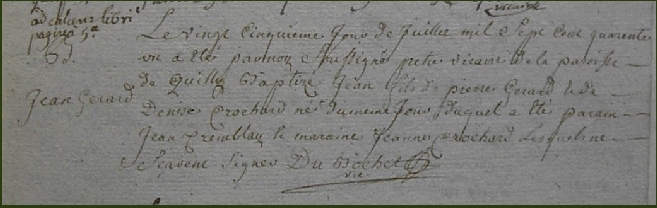 ad calcem libri
pagina 5a
Le vingt cinquieme Jour de Juillet mil Sept cent quarente
un a étés par nous Soussignés pretre vicaire de la paroisse
de Quillé Baptizé Jean fils de pierre Gerard et de
Jean Gerard
Denise Crochard nés du meme Jour duquel a étés param
Jean Tremblau la maraine Jeanne Crochard Lesquels ne
Scavent Signer Du Bochet
vic